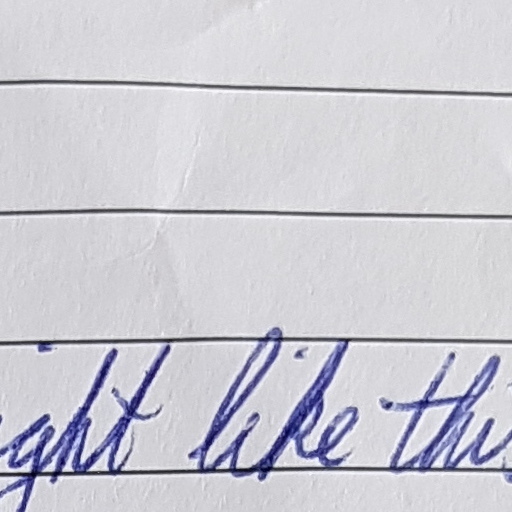 ight like this